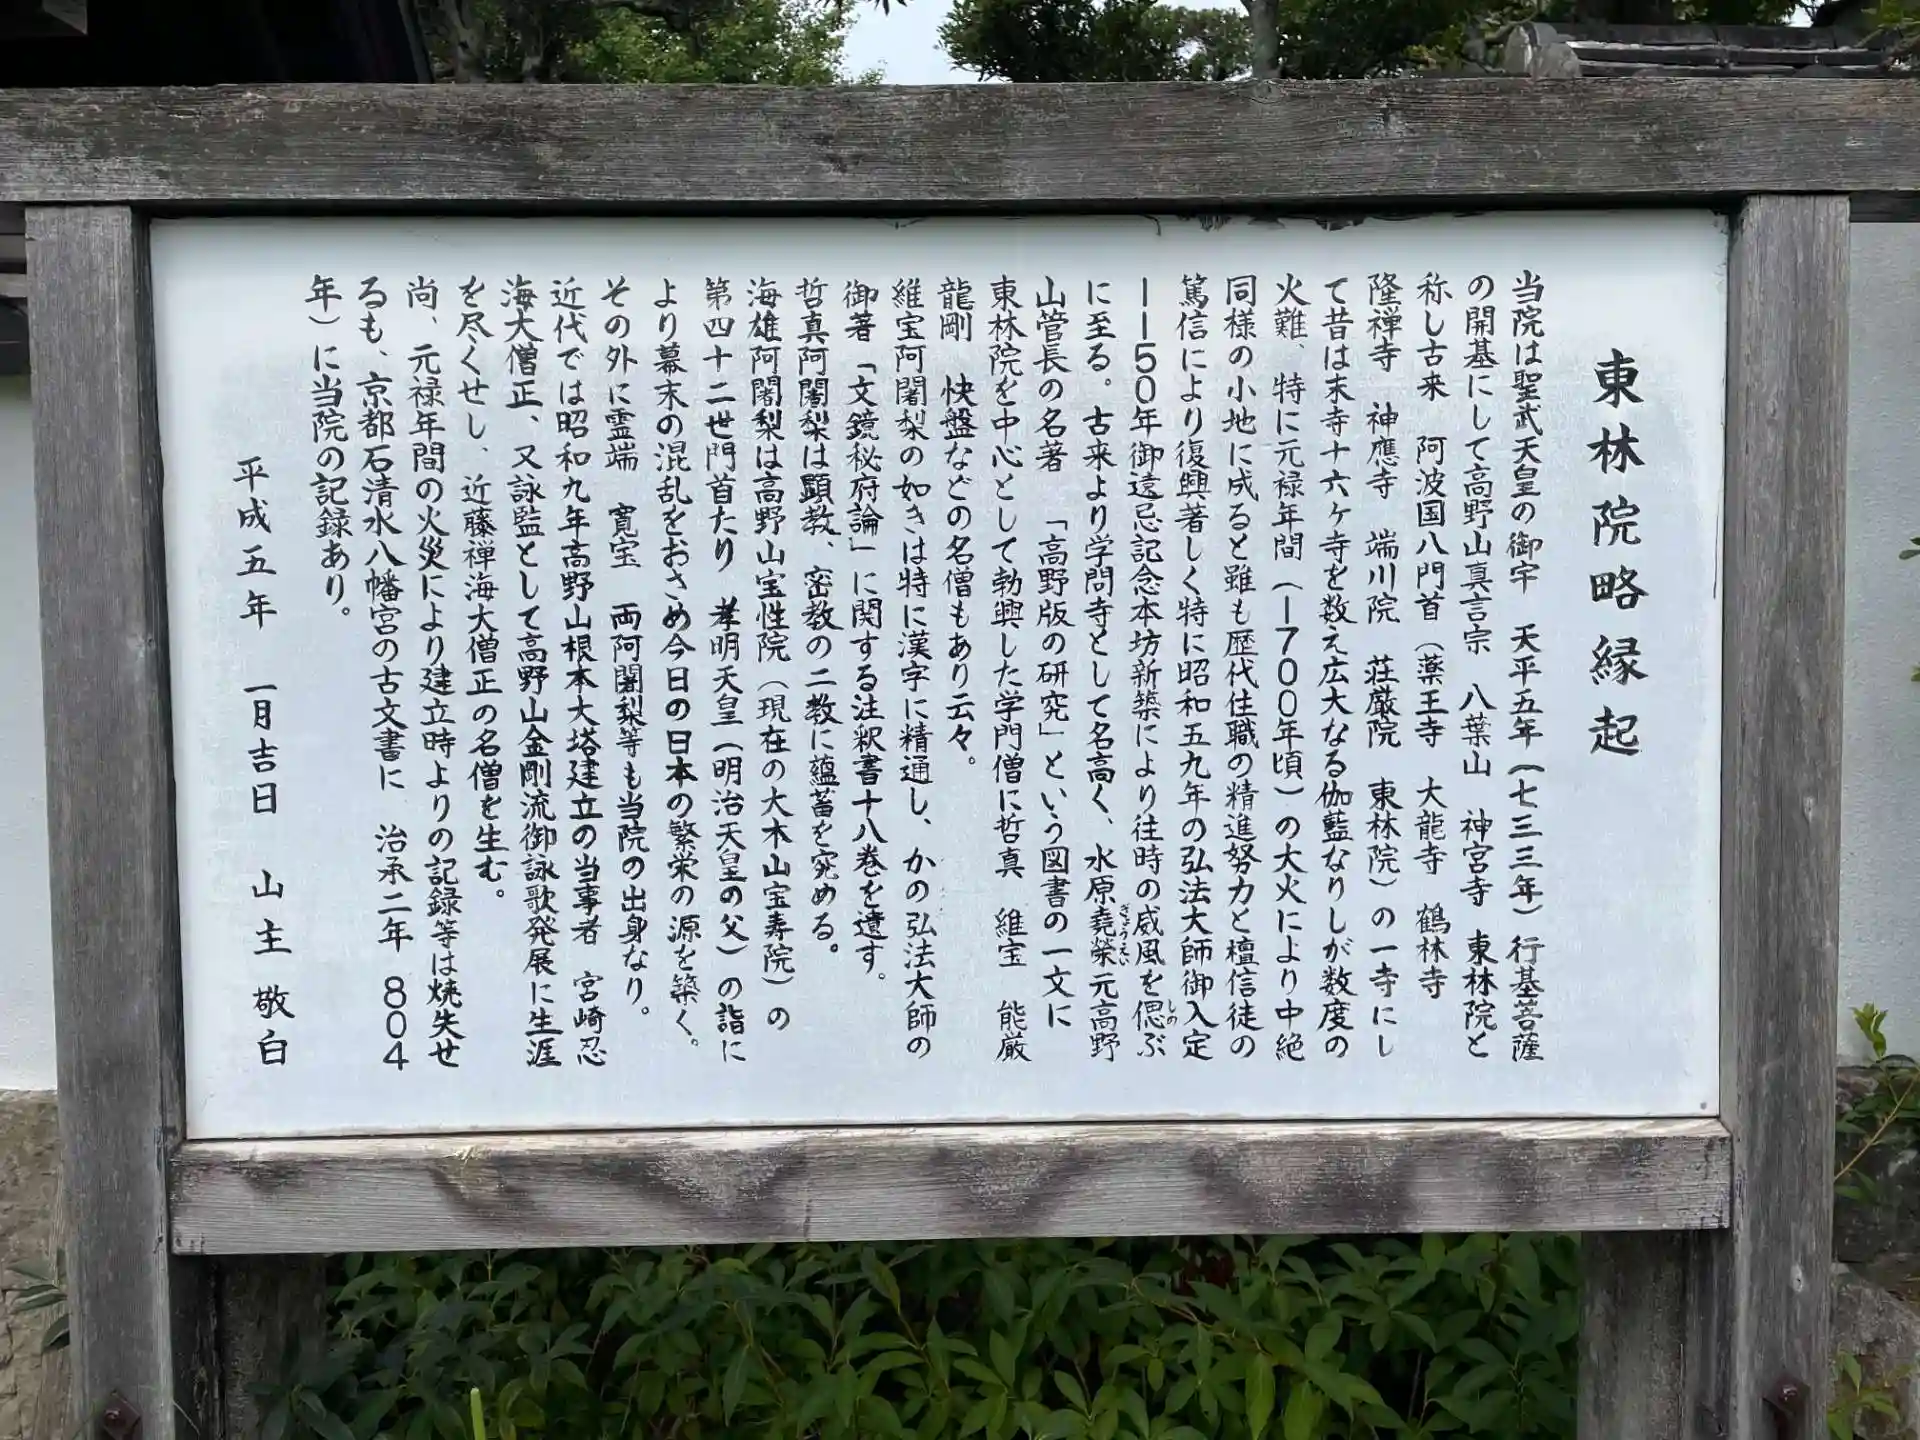 東林院略縁起
当院は聖武天皇の御宇　天平五年（七三三年）行基菩薩
の開基にして高野山真言宗　八葉山　神宮寺　東林院と
称し古来　阿波国八門首（薬王寺　大龍寺　鶴林寺
隆禅寺　神應寺　端川院　荘厳院　東林院）の一寺にし
て昔は末寺十六ヶ寺を数え広大なる伽藍なりしが数度の
火難、特に元禄年間（一７００年頃）の大火により中絶
同様の小地に成ると雖も歴代住職の精進努力と檀信徒の
篤信により復興著しく特に昭和五九年の弘法大師御入定
一一５０年御遠忌記念本坊新築により往時の威風を偲ぶ
に至る。古来より学問寺として名高く、水原堯榮元高野
山管長の名著　「高野版の研究」という図書の一文に
東林院を中心として勃興した学門僧に哲真　維宝　能厳
龍剛　快盤などの名僧もあり云々。
維宝阿闍梨の如きは特に漢字に精通し、かの弘法大師の
御著「文鏡秘府論」に関する注釈書十八巻を遺す。
哲真阿闍梨は顕教、密教の二教に蘊蓄を究める。
海雄阿闍梨は高野山宝性院（現在の大本山宝寿院）の
第四十二世門首たり　孝明天皇（明治天皇の父）の詣に
より幕末の混乱をおさめ今日の日本の繁栄の源を築く。
その外に霊端　寛宝　両阿闍梨等も当院の出身なり。
近代では昭和九年高野山根本大塔建立の当事者　宮崎忍
海大僧正、又詠監として高野山金剛流御詠歌発展に生涯
を尽くせし、近藤禅海大僧正の名僧を生む。
尚、元禄年間の火災により建立時よりの記録等は焼失せ
るも、京都石清水八幡宮の古文書に　治承二年　８０４
年）に当院の記録あり。
平成五年　一月吉日　山主敬白